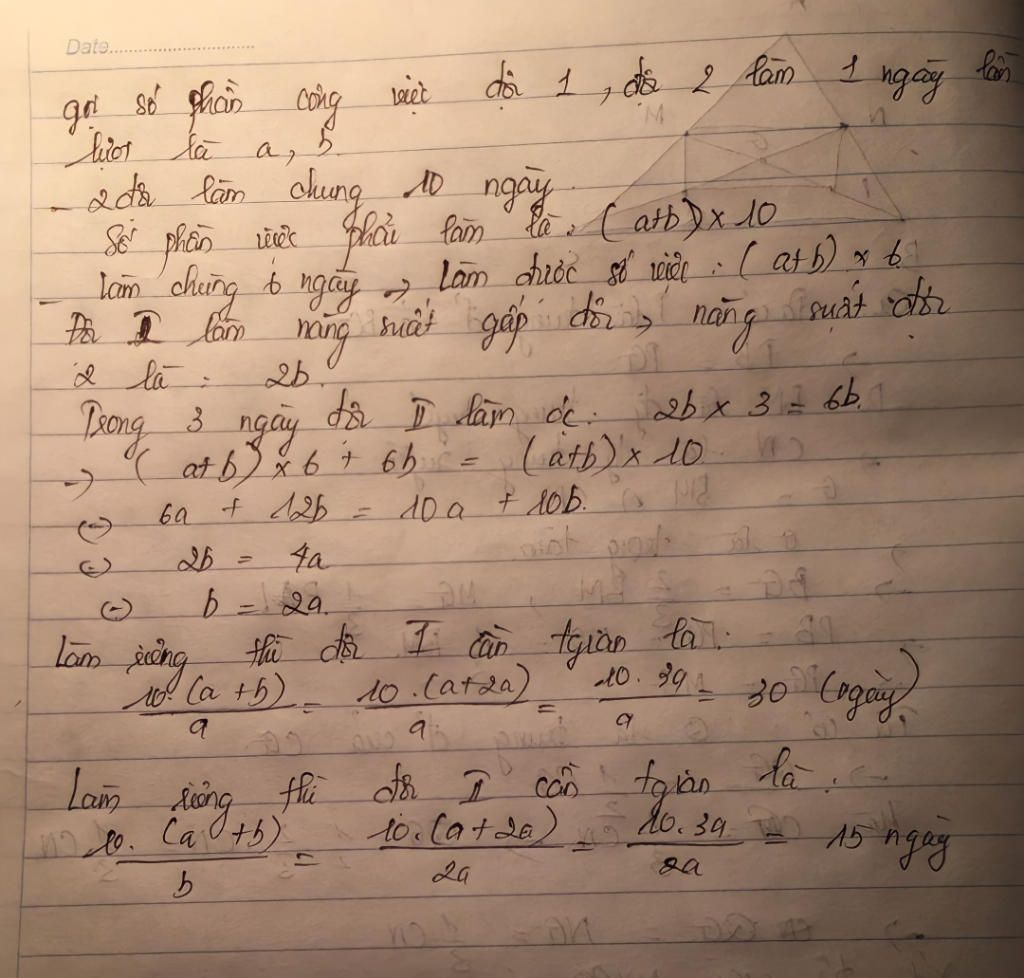 Date
gọi số phần công việc đội 1, đội 2 làm 1 ngày lần
lượt là a, b
- 2 đội làm chung 10 ngày
Số phần việc phải làm là: (a+b) x 10
- làm chung 6 ngày -> làm được số việc: (a+b) x 6
Đội II làm năng suất gấp đôi -> năng suất đội
2 là: 2b.
Trong 3 ngày đội II làm đc: 2b x 3 = 6b.
-> (a+b) x 6 + 6b = (a+b) x 10
(=) 6a + 12b = 10a + 10b.
(=) 2b = 4a
(=) b = 2a.
làm riêng thì đội I cần tgian là:
10.(a+b)/a = 10.(a+2a)/a = 10.3a/a = 30 (ngày)
Làm riêng thì đội II cần tgian là:
10.(a+b)/b = 10.(a+2a)/2a = 10.3a/2a = 15 ngày